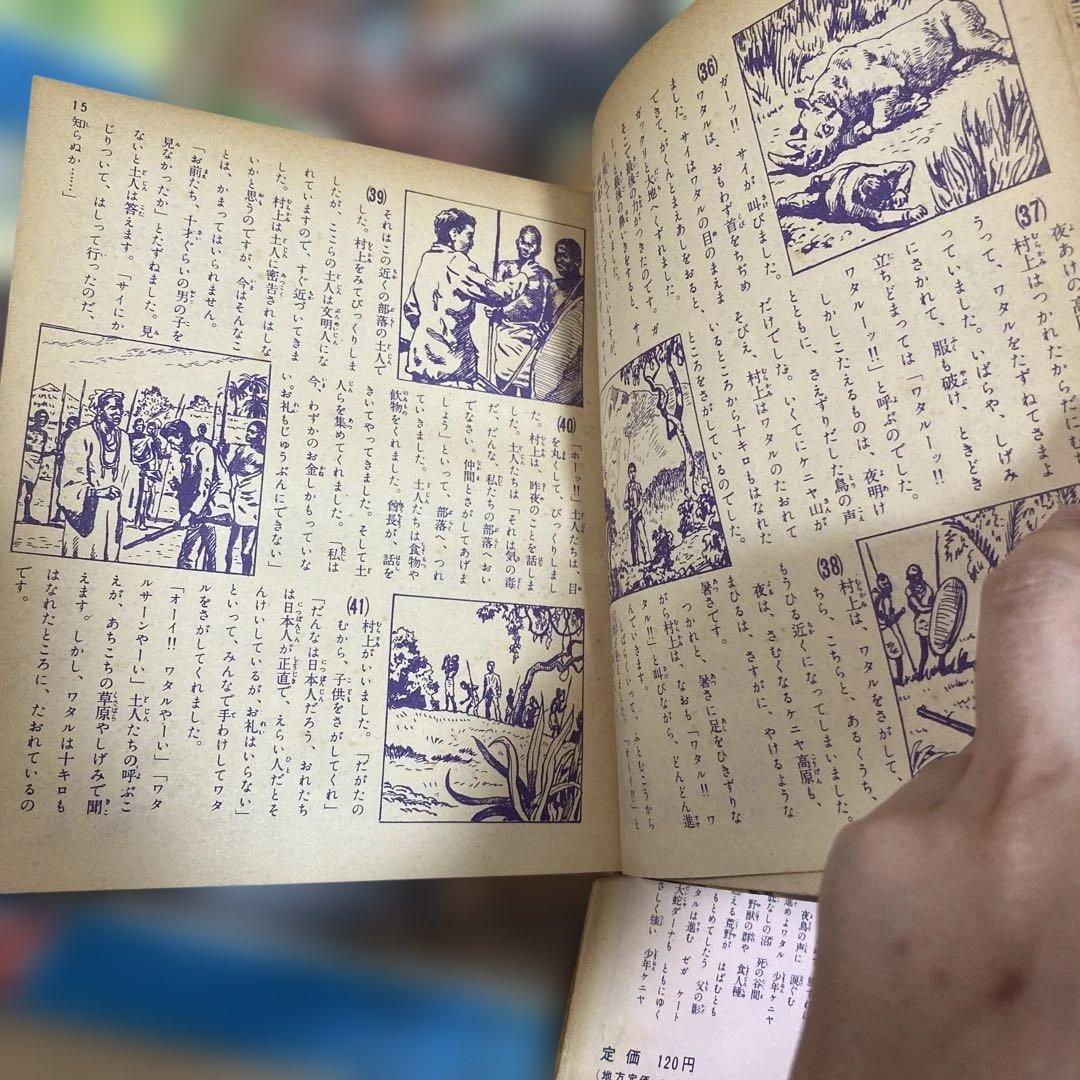 (36)
ガーッ!!　サイが叫びました。
ワタルは、おもわず首をちぢめ
ました。サイはワタルの目のまえま
できて、がくんとまえあしをおると、
ガックリと大地へくずれました。
(37)
夜あけの高
村上はつかれたからだにむち
うって、ワタルをたずねてさまよ
っていました。いばらや、しげみ
にさかれて、服も破け、ときどき
立ちどまっては「ワタルーッ!!
ワタルーッ!!」と呼ぶのでした。
しかしこたえるものは、夜明け
とともに、さえずりだした鳥の声
だけでした。いくてにケニヤ山が
そびえ、村上はワタルのたおれて
いるところから十キロもはなれた
ところをさがしているのでした。
(38)
村上は、ワタルをさがして、
ちら、こちらと、あるくうち、
もうひる近くになってしまいました。
夜は、さむくなるケニヤ高原も、
まひるは、さすがに、やけるような
暑さです。
つかれと、暑さに足をひきずりな
がら村上は、なおも「ワタル!!　ワ
タル!!」と叫びながら、どんどん進
んでいきます。
しばらくいって、ふとむこうから
「オーイ!!」と
(39)
それはこの近くの部落の土人で
した。村上をみてびっくりしま
したが、ここらの土人は文明人にな
れていますので、すぐ近づいてきま
した。村上は土人に密告されはしな
いかと思うのですが、今はそんなこ
とは、かまってはいられません。
「お前たち、十才ぐらいの男の子を
見なかったか」とたずねました。見
ないと土人は答えます。「サイにか
じりついて、はしって行ったのだ、
知らぬか……」
(40)
「ホーッ!!」土人たちは、目
を丸くして、びっくりしまし
た。村上は、昨夜のことを話しま
した。土人たちは「それは気の毒
だ、だんな、私たちの部落へおい
でなさい。仲間とさがしてあげま
しょう」といって、部落へ、つれ
ていきました。土人たちは食物や
飲物をくれました。酋長が、話を
きいてやってきました。そして土
人らを集めてくれました。「私は
今、わずかのお金しかもっていな
い。お礼もじゅうぶんにできない」
(41)
村上がいいました。「だがたの
むから、子供をさがしてくれ」
「だんなは日本人だろう、おれたち
は日本人が正直で、えらい人だとそ
んけいしているがお礼はいらない」
といって、みんなで手わけしてワタ
ルをさがしてくれました。
「オーイ!!　ワタルやーい」「ワタ
ルサーンやーい」土人たちの呼ぶこ
えが、あちこちの草原やしげみで聞
えます。しかし、ワタルは十キロも
はなれたところに、たおれているの
です。
15
夜鳥の声に　涙ぐむ
進めよワタル　少年ケニヤ
底なしの沼　死の谷間
野獣の群や　食人種
荒野が　はばむとも
もとめてしたう　父の影
タルは進む　ゼガ　ケート
大蛇ダーナも　ともにゆく
さしく強い　少年ケニヤ
定価　120円
(地方定価